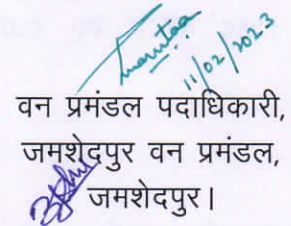 11/02/2023
वन प्रमंडल पदाधिकारी,
जमशेदपुर वन प्रमंडल,
जमशेदपुर।